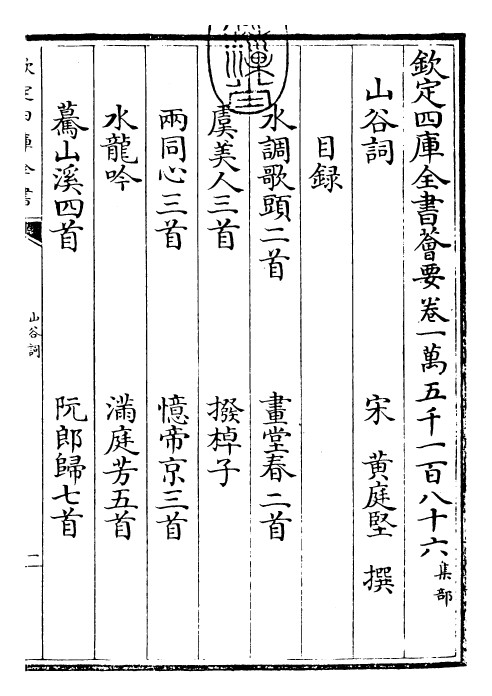 欽定四庫全書薈要卷一萬五千一百八十六 集部
山谷詞 宋 黃庭堅 撰
目録
水調歌頭二首 畫堂春二首
虞美人三首 撥棹子
兩同心三首 憶帝京三首
水龍吟 滿庭芳五首
驀山溪四首 阮郎歸七首
欽定四庫全書
山谷詞